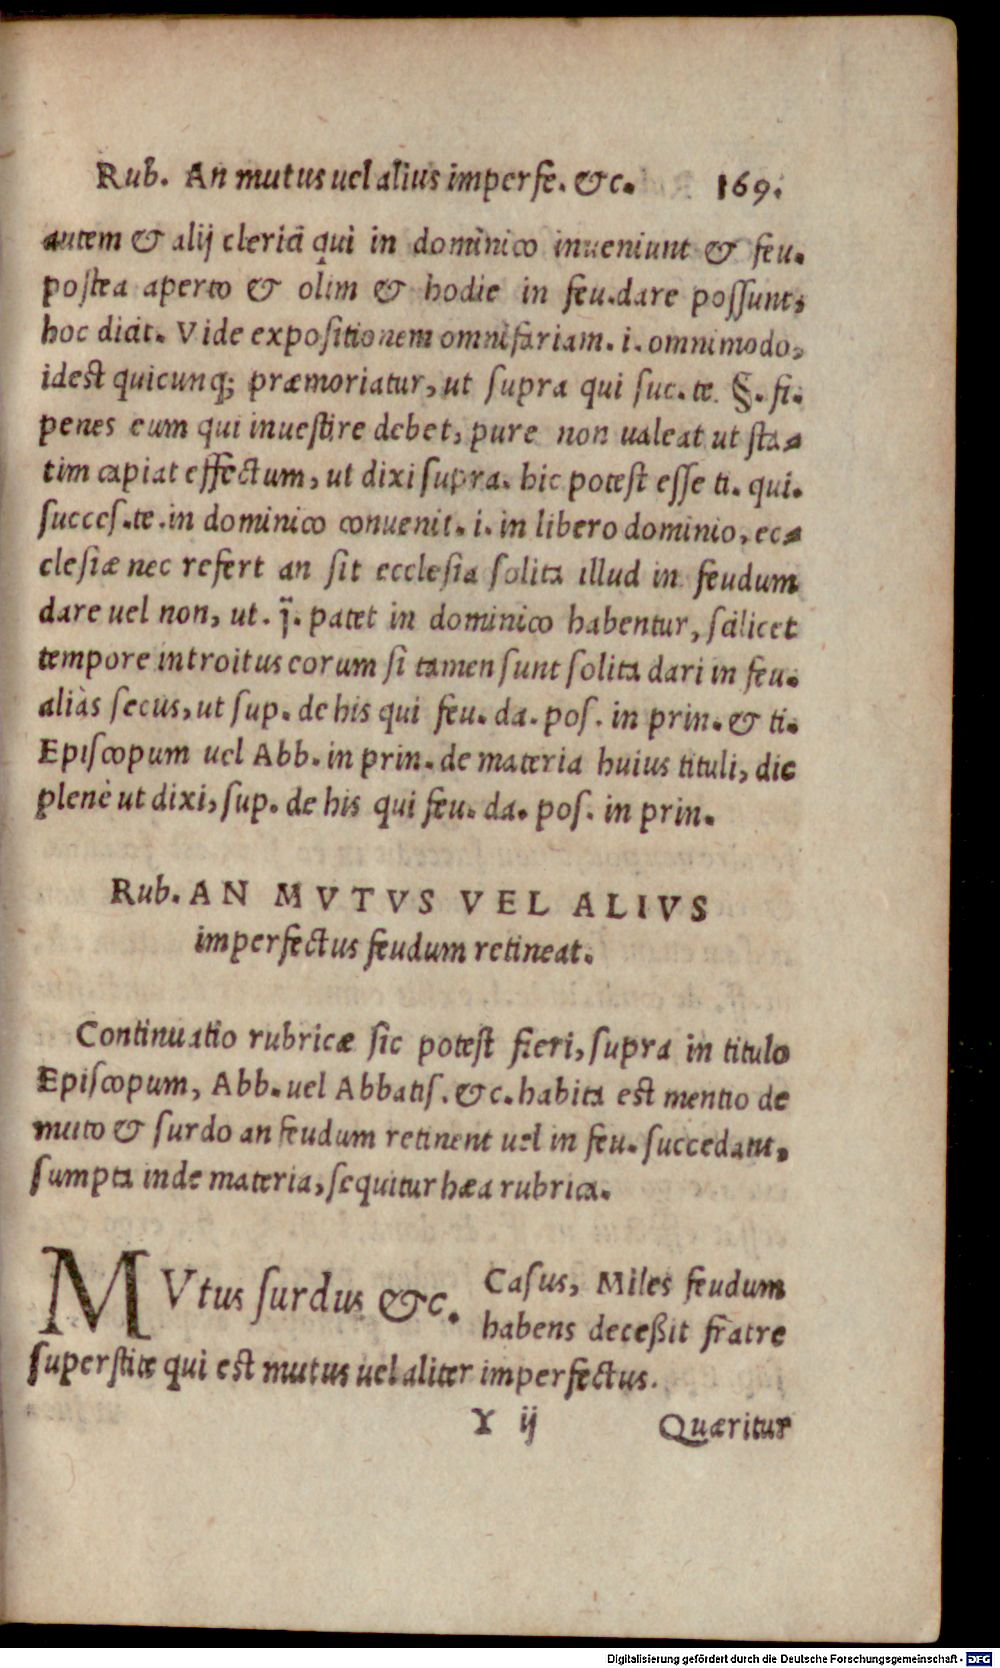 Rub. An mutus uel alius imperfe. &c. 169.
autem & alij clerici qui in dominico inueniunt & feu.
postea aperto & olim & hodie in feu. dare possunt,
hoc dicit. Vide expositionem omnifariam. i. omnimodo,
idest quicunq; præmoriatur, ut supra qui suc. te. §. fi.
penes eum qui inuestire debet, pure non ualeat ut sta-
tim capiat effectum, ut dixi supra. hic potest esse ti. qui.
succes. te. in dominico conuenit. i. in libero dominio, ec-
clesiæ nec refert an sit ecclesia solita illud in feudum
dare uel non, ut. j̈. patet in dominico habentur, scilicet
tempore introitus eorum si tamen sunt solita dari in feu.
aliàs secus, ut sup. de his qui feu. da. pos. in prin. & ti.
Episcopum uel Abb. in prin. de materia huius tituli, dic
plenè ut dixi, sup. de his qui feu. da. pos. in prin.
Rub. AN MVTVS VEL ALIVS
imperfectus feudum retineat.
Continuatio rubricæ sic potest fieri, supra in titulo
Episcopum, Abb. uel Abbatis. &c. habita est mentio de
muto & surdo an feudum retinent uel in feu. succedant.
sumpta inde materia, sequitur hæa rubrica.
MVtus surdus &c. Casus, Miles feudum
habens deceßit fratre
superstite qui est mutus uel aliter imperfectus.
Y ij Quæritur
Digitalisierung gefördert durch die Deutsche Forschungsgemeinschaft - DFG